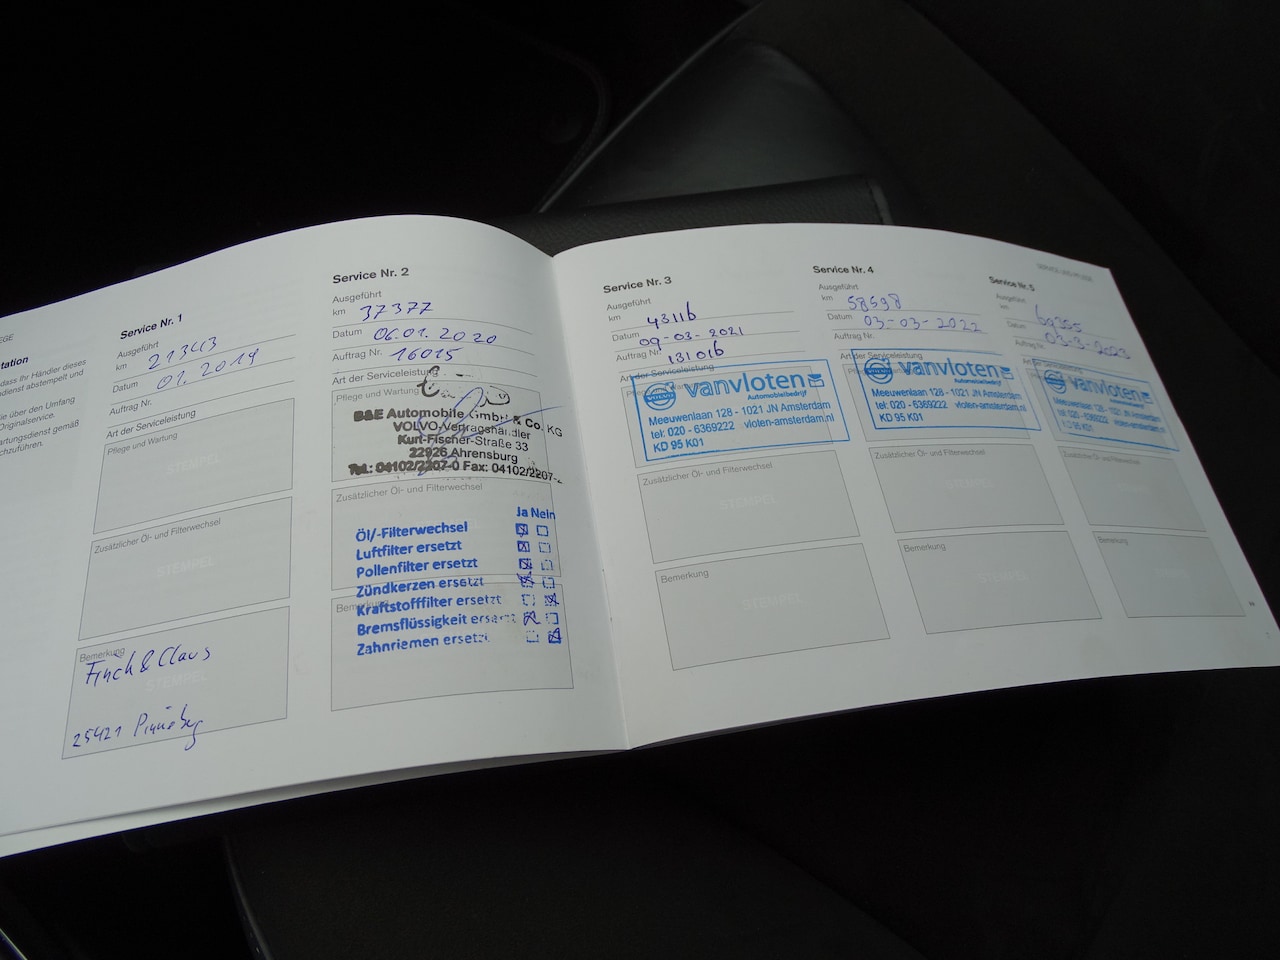 EGE
tation
dass Ihr Händler dieses
dienst abstempelt und
ie über den Umfang
Originalservice.
artungsdienst gemäß
chzuführen.
Service Nr. 1
Ausgeführt
km 21343
Datum 01. 2019
Auftrag Nr.
Art der Serviceleistung
Pflege und Wartung
STEMPEL
Zusätzlicher Öl- und Filterwechsel
STEMPEL
Bemerkung
Finck & Claus
STEMPEL
25421 Pinneberg
Service Nr. 2
Ausgeführt
km 37377
Datum 06.01.2020
Auftrag Nr. 16015
Art der Serviceleistung
Pflege und Wartung
B&E Automobile GmbH & Co. KG
VOLVO-Vertragshändler
Kurt-Fischer-Straße 33
22926 Ahrensburg
Tel.: 04102/2207-0 Fax: 04102/2207-
Zusätzlicher Öl- und Filterwechsel
Ja Nein
Öl/-Filterwechsel
Luftfilter ersetzt
Pollenfilter ersetzt
Zündkerzen ersetzt
Bemerkung
Kraftstofffilter ersetzt
Bremsflüssigkeit ersetzt
Zahnriemen ersetzt
Service Nr. 3
Ausgeführt
km 43116
Datum 09-03-2021
Auftrag Nr. 131016
Art der Serviceleistung
VOLVO vanvloten
Automobielbedrijf
Meeuwenlaan 128 - 1021 JN Amsterdam
tel: 020 - 6369222 vloten-amsterdam.nl
KD 95 K01
Zusätzlicher Öl- und Filterwechsel
STEMPEL
Bemerkung
STEMPEL
Service Nr. 4
Ausgeführt
km 58598
Datum 03-03-2022
Auftrag Nr.
Art der Serviceleistung
VOLVO vanvloten
Automobielbedrijf
Meeuwenlaan 128 - 1021 JN Amsterdam
tel: 020 - 6369222 vloten-amsterdam.nl
KD 95 K01
Zusätzlicher Öl- und Filterwechsel
STEMPEL
Bemerkung
STEMPEL
SERVICE UND PFLEGE
Service Nr. 5
Ausgeführt
km
Datum 03-3-2023
Auftrag Nr.
Art der Serviceleistung
vanvloten
Automobielbedrijf
Meeuwenlaan 128 - 1021 JN Amsterdam
tel: 020 - 6369222 vloten-amsterdam.nl
KD 95 K01
Zusätzlicher Öl- und Filterwechsel
Bemerkung